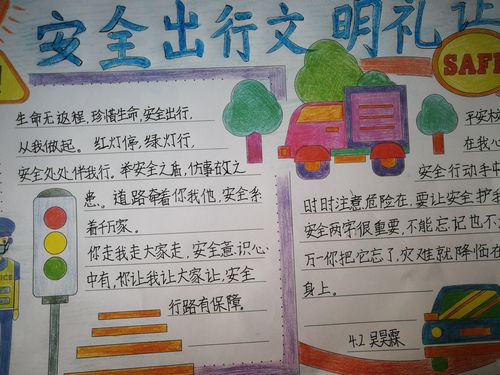 安全出行文明礼让
SAFE
生命无返程,珍惜生命,安全出行,
从我做起。红灯停,绿灯行,
安全处处伴我行。举安全之盾,防事故之
患。道路牵着你我他,安全系
着千万家。
你走我走大家走,安全意识心
中有,你让我让大家让,安全
行路有保障。
平安校
在我心
安全行动手中
时时注意危险在,要让安全护我
安全两字很重要,不能忘记也不
万一你把它忘了,灾难就降临在
身上。
4.2 吴昊霖